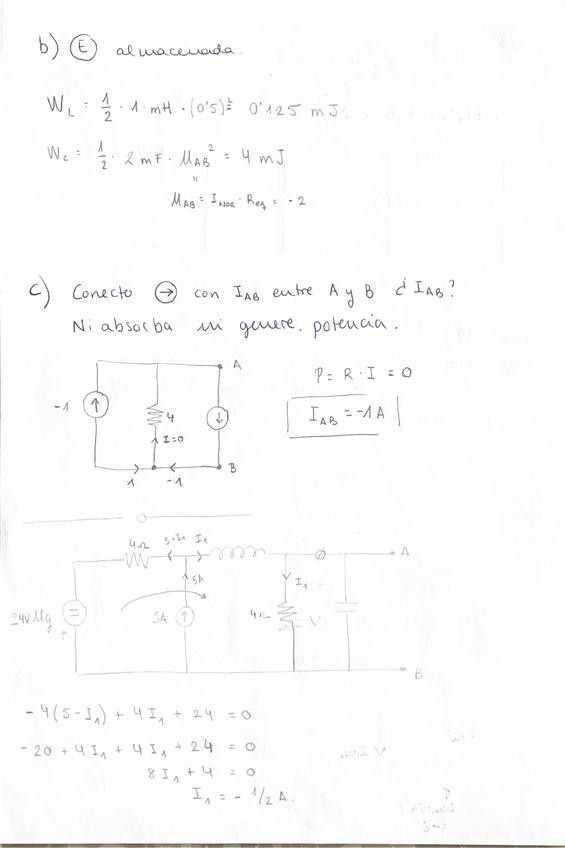 b) Ⓔ almacenada.
W_L = 1/2 · 1 · mH · (0'5)² = 0'125 mJ.
W_C = 1/2 · 2 mF · M_AB² = 4 mJ
"
M_AB = I_Nor · R_eq = -2
c) Conecto → con I_AB entre A y B ¿ I_AB?
Ni absorba ni genere potencia.
A
P = R · I = 0
-1
4
I_AB = -1A
I=0
B
1 -1
4Ω 5-I₁ I₁
A
5A I₁
24V Mg 5A 4Ω
B
-4(5-I₁) + 4I₁ + 24 = 0
-20 + 4I₁ + 4I₁ + 24 = 0
8I₁ + 4 = 0
I₁ = - 1/2 A.